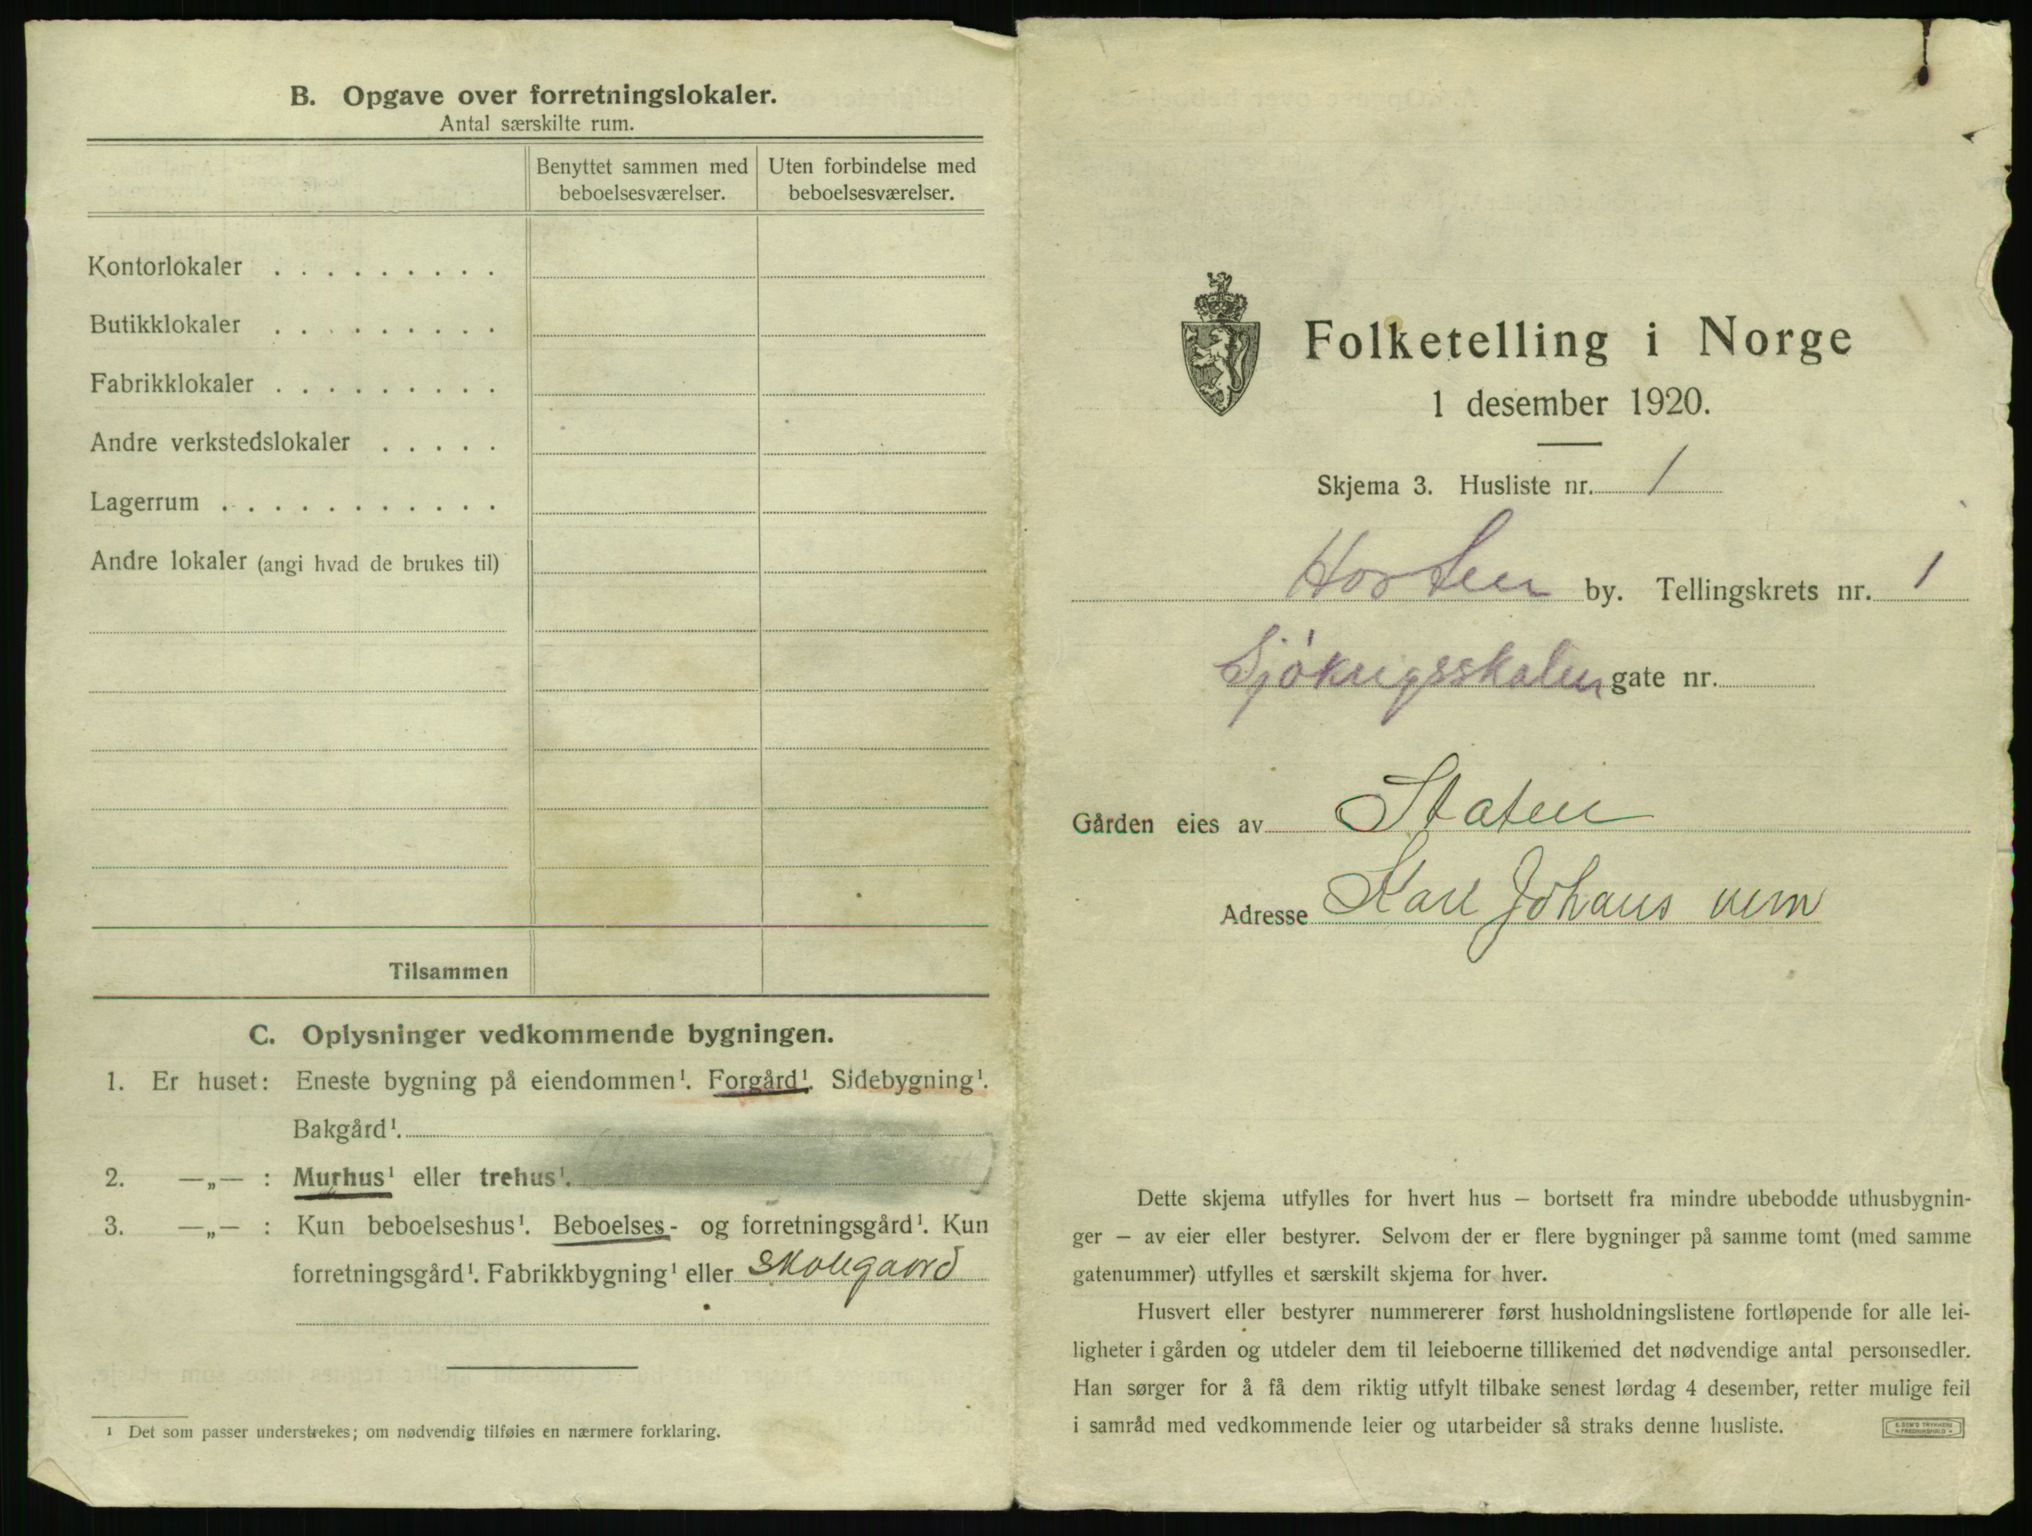 B. Opgave over forretningslokaler.
Antal særskilte rum.
Benyttet sammen med beboelsesværelser.
Uten forbindelse med beboelsesværelser.
Kontorlokaler . . . . . . . . .
Butikklokaler . . . . . . . . .
Fabrikklokaler . . . . . . . . .
Andre verkstedslokaler . . . . .
Lagerrum . . . . . . . . . . .
Andre lokaler (angi hvad de brukes til)
Tilsammen
C. Oplysninger vedkommende bygningen.
1. Er huset: Eneste bygning på eiendommen¹. Forgård¹. Sidebygning¹.
Bakgård¹.
2. —„— : Murhus¹ eller trehus¹.
3. —„— : Kun beboelseshus¹. Beboelses- og forretningsgård¹. Kun
forretningsgård¹. Fabrikkbygning¹ eller Skolegaard
¹ Det som passer understrekes; om nødvendig tilføies en nærmere forklaring.
Folketelling i Norge
1 desember 1920.
Skjema 3. Husliste nr. 1
Horten by. Tellingskrets nr. 1
Sjökrigsskolen gate nr.
Gården eies av Staten
Adresse Karl Johans vern
Dette skjema utfylles for hvert hus — bortsett fra mindre ubebodde uthusbygnin-
ger — av eier eller bestyrer. Selvom der er flere bygninger på samme tomt (med samme
gatenummer) utfylles et særskilt skjema for hver.
Husvert eller bestyrer nummererer først husholdningslistene fortløpende for alle lei-
ligheter i gården og utdeler dem til leieboerne tillikemed det nødvendige antal personsedler.
Han sørger for å få dem riktig utfylt tilbake senest lørdag 4 desember, retter mulige feil
i samråd med vedkommende leier og utarbeider så straks denne husliste.
E. SEM'S TRYKKERI
FREDRIKSHALD